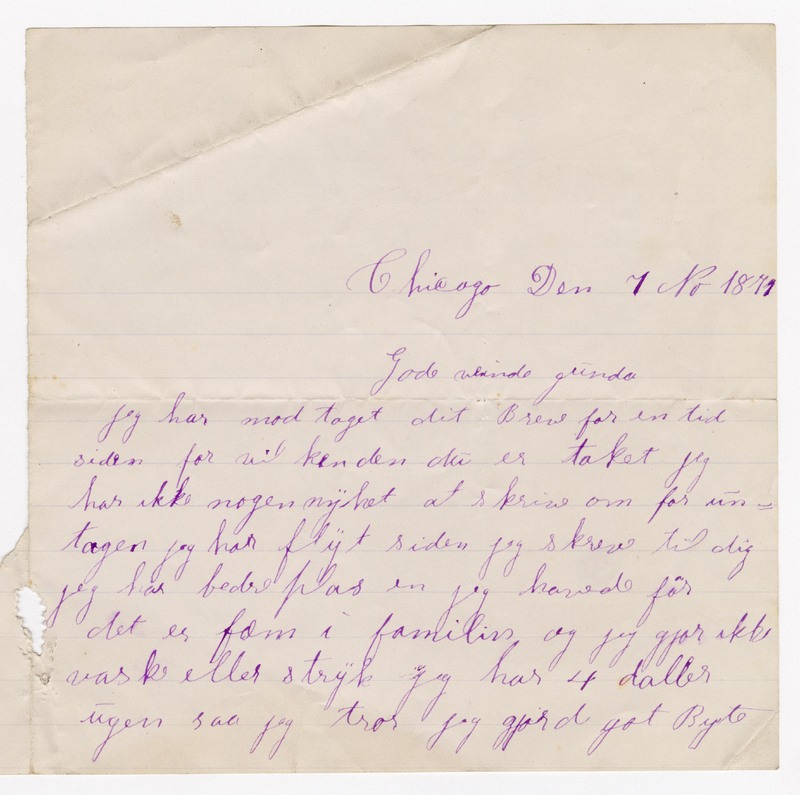 Chicago Den 7 No 1871
Gode veinde gunda
jeg har mod taget dit Brew for en tid
siden for vil kenden du er taket jeg
har ikke nogen nyhet at skriw om for un=
tagen jeg har flyt siden jeg skrew til dig
jeg har bedre plas en jeg hawde för
det er fæm i familin og jeg gjør ikke
vaske eller stryk jeg har 4 daller
ugen saa jeg tror jeg gjord got Byte